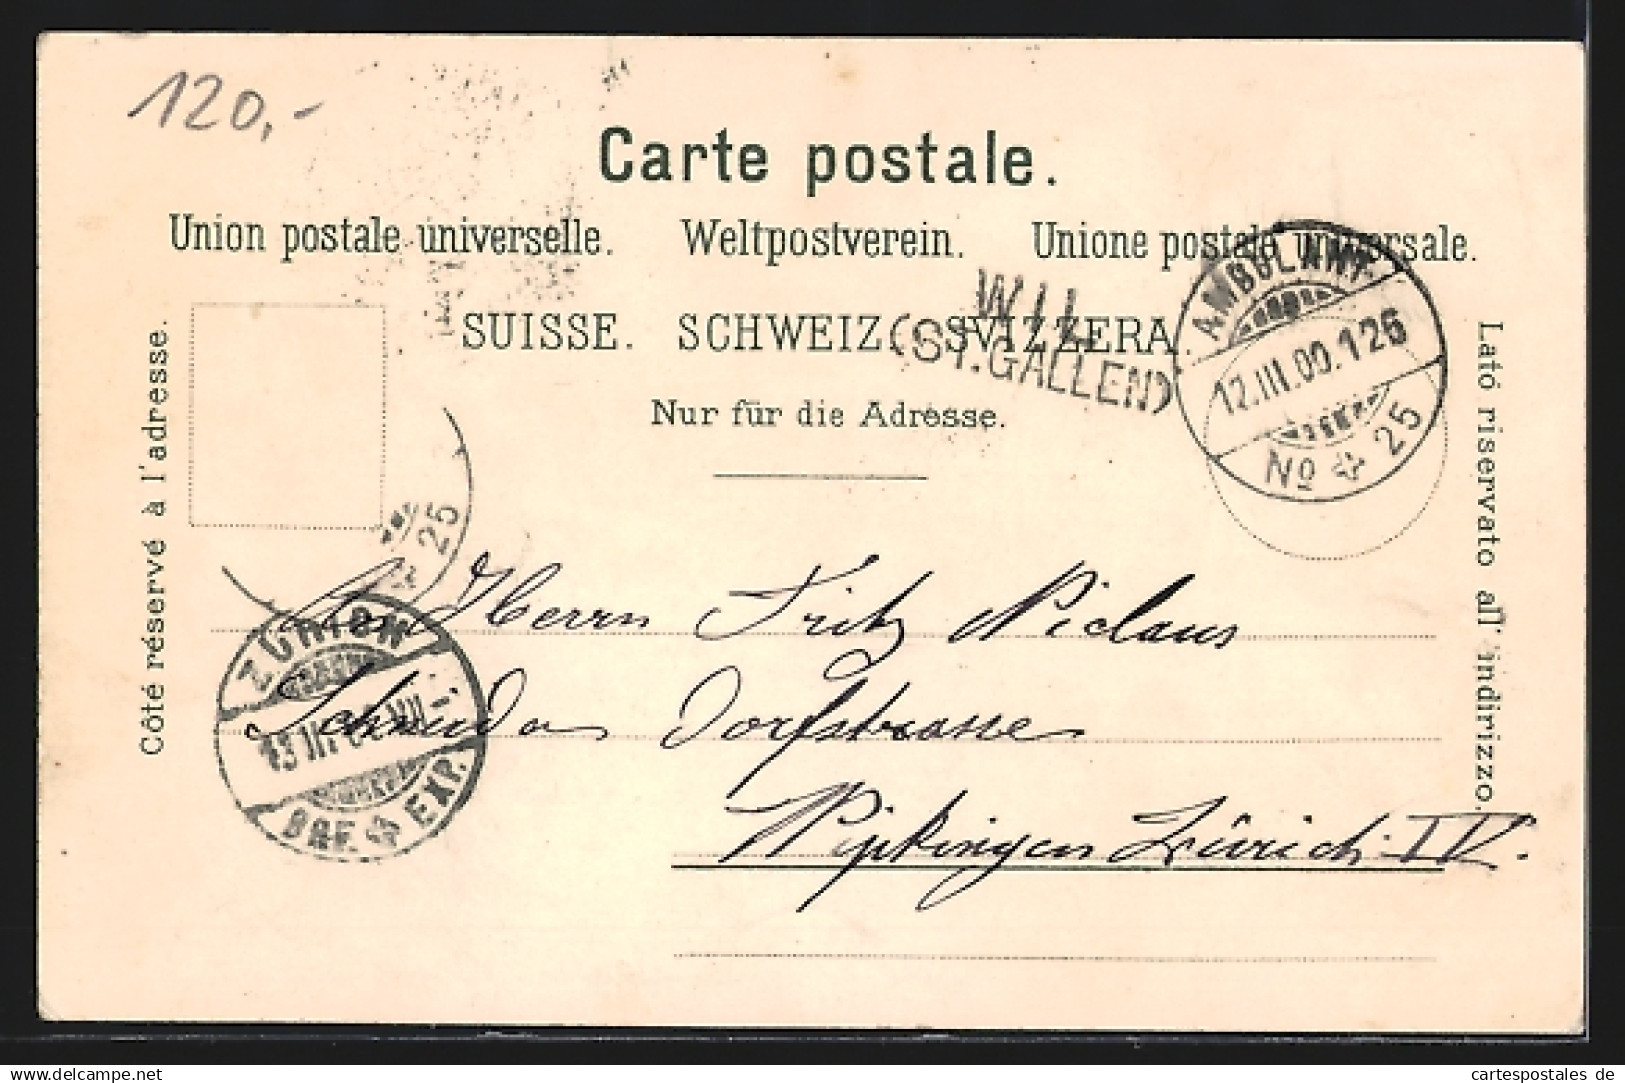 120,-
Carte postale.
Union postale universelle. Weltpostverein. Unione postale universale.
SUISSE. SCHWEIZ. SVIZZERA.
Nur für die Adresse.
Côté réservé à l'adresse.
Lato riservato all' indirizzo.
WIL
(ST. GALLEN)
AMBULANT
12.III.00.126
No 25
25
Herrn Fritz Niclaus
Dorfstrasse
Wipkingen Zürich IV.
ZÜRICH
13 III.
BRF. EXP.
Delcampe.net
cartespostales de